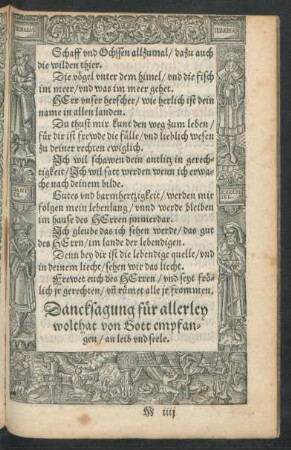 Schaff vnd Ochssen allzumal / dazu auch
die wilden thier.
Die vögel vnter dem himel / vnd die fisch
im meer / vnd was im meer gehet.
HErr vnser herscher / wie herlich ist dein
name in allen landen.
Du thust mir kunt den weg zum leben /
für dir ist frewde die fülle / vnd lieblich wesen
zu deiner rechten ewiglich.
Ich wil schawen dein antlitz in gerech-
tigkeit / Ich wil satt werden wenn ich erwa-
che nach deinem bilde.
Gutes vnd barmhertzigkeit / werden mir
folgen mein lebenlang / vnnd werde bleiben
im hause des HErren jmmerdar.
Ich gleube das ich sehen werde / das gut
des HErrn / im lande der lebendigen.
Denn bey dir ist die lebendige quelle / vnd
in deinem liecht / sehen wir das liecht.
Frewet euch des HErren / vnd seyt frö-
lich jr gerechten / vñ rümet alle jr frommen.
Dancksagung für allerley
wolthat von Gott empfan-
gen / an leib vnd seele.
W iiij